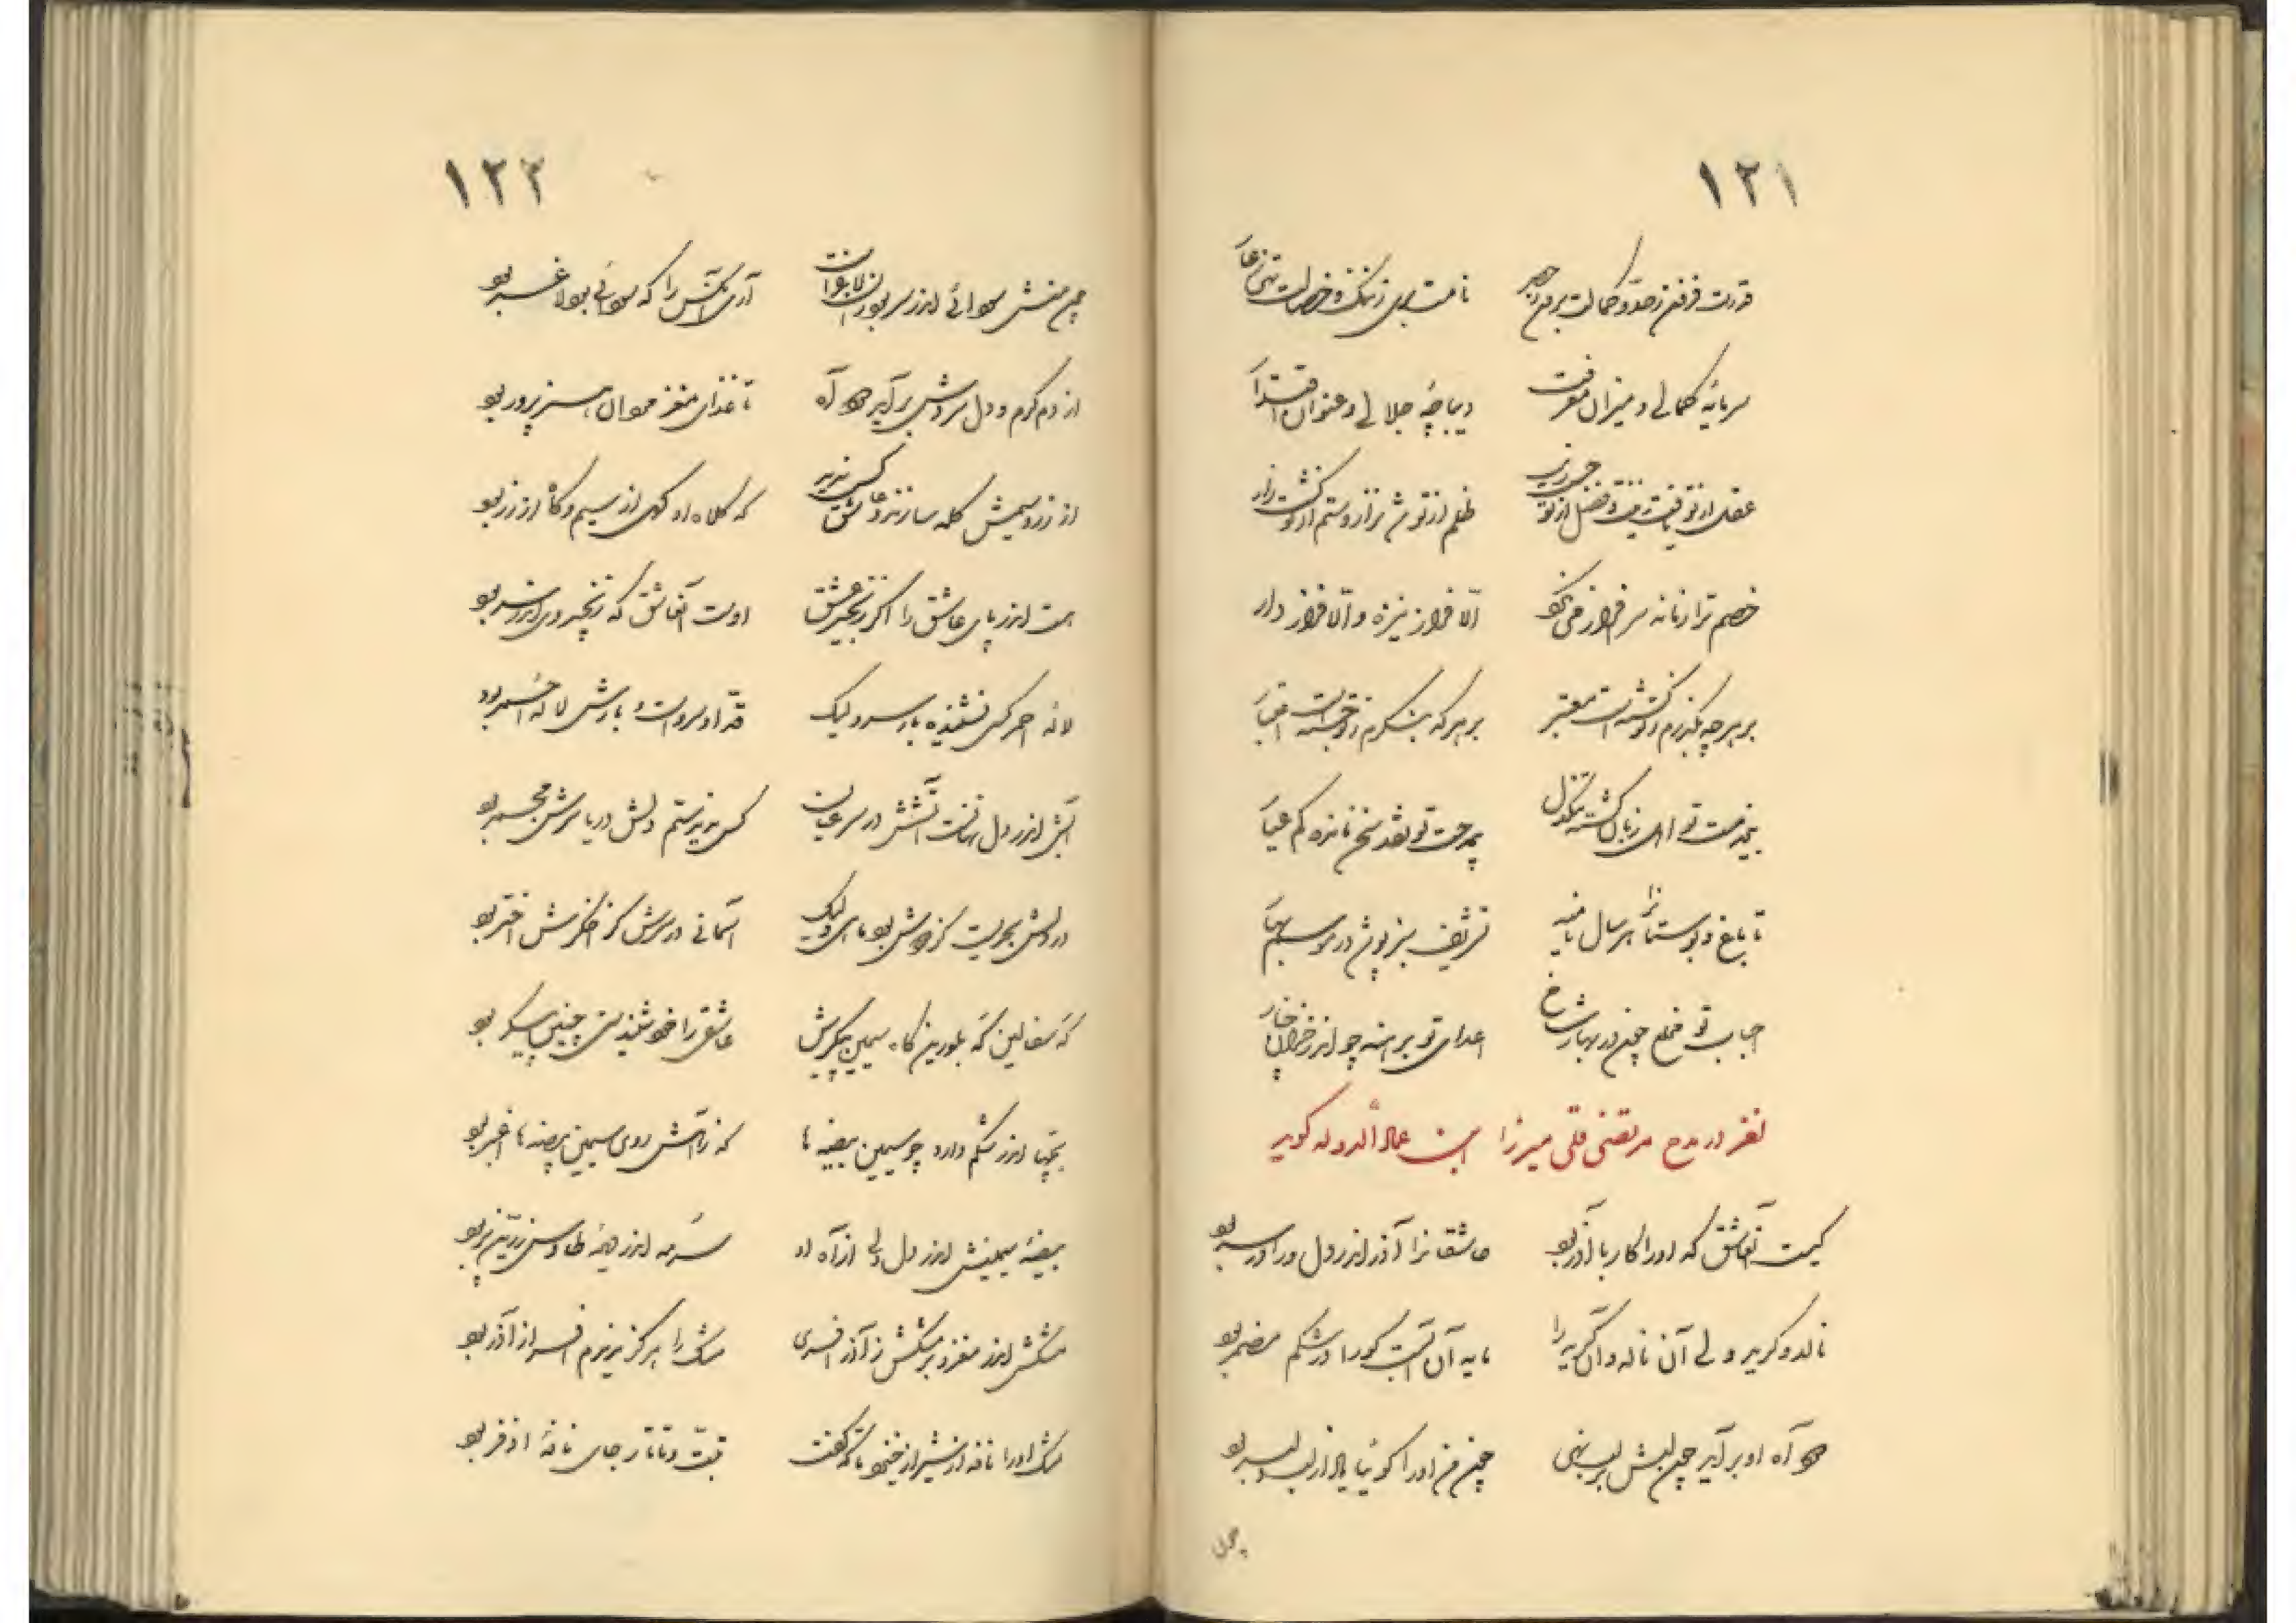 ۱۲۱
قدرت فزون ز حد و کمالت برون ز حصر نامت بری ز ننگ و خصالت تهی ز عار
سرمایهٔ کمالی و میزان معرفت دیباچهٔ جلالی و عنوان اقتدار
عقل از تو یافت زینت و فضل از تو ظلم از تو شد نزار و ستم از تو گشت زار
خصم ترا زمانه سرافراز می نخواست الا فراز نیزه و الا فراز دار
بر هرچه بگذرم ز تو گشته است معتبر بر هر که بنگرم ز تو جسته است اعتبار
بخدمت تو ای زبان گشته بمدحت تو نقد سخن مانده کم عیار
تا باغ و بوستان را هر سال نامیه تشریف سبز پوشد در موسم بهار
احباب تو مخلع چون در بهار شاخ اعدای تو برهنه چو اندر خزان چنار
لغز در مدح مرتضی قلی میرزا ابن عماد الدوله گوید
کیست آن عاشق که او را کار با آذر بود عاشقانرا آذر اندر دل ورا در سر بود
نالد و گرید ولی آن ناله و آن گریه را مایه آن آبست کو را در شکم مضمر بود
دود آه او برآید چون لبش بر لب نهی چون من او را گوئیا یار از لب دلبر بود
چون
۱۲۲
چون منش سودائی اندر سر بود زان لاغر است آری آنکس را که سودائی بود لاغر بود
از دم گرم و دل سردش برآید دود آه تا غذای مغز مردان سخن پرور بود
از زر و سیمش کله سازند و عاشق کس ندید که کلاه او گهی از سیم و گاه از زر بود
هست اندر پای عاشق را اگر زنجیر عشق اوست آن عاشق که زنجیر وی اندر سر بود
لاله احمر کسی نشنیده بار سرو لیک قد او سرو است و بارش لالهٔ احمر بود
آبش اندر دل نهانست آتشش در سر عیان کس ندیدستم دلش دریا سرش مجمر بود
در دلش بحریست کز جوشش بود ماهی ولیک آسمانی در سرش کز اخگرش اختر بود
گه سفالین گه بلورین گاه سیمین پیکرش عاشقی را خود شنیدستی چنین پیکر بود
بچها اندر شکم دارد چو سیمین بیضه ها که ز آتش روی سیمین بیضه ها اغبر بود
بیضهٔ سیمینش اندر دل ولی از آه او سرمه اندر دیدهٔ طاوس زرین پر بود
مشکش اندر مغز و بر مشکش ز آذر افسری مشک را هرگز ندیدم افسر از آذر بود
مشک او را نافه از شیراز خیزد تا که گفت تبت و تاتار جای نافهٔ اذفر بود